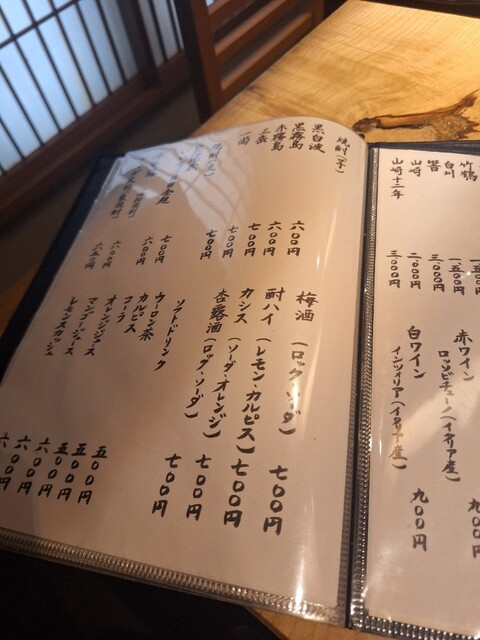 竹鶴
白州 一五〇〇円
響 三〇〇〇円
山崎 二〇〇〇円
山崎十二年 三〇〇〇円
赤ワイン
ロッソピチェーノ(イタリア産) 九〇〇円
白ワイン
インツォリア(イタリア産) 九〇〇円
焼酎(芋)
黒白波 六〇〇円
黒霧島 六〇〇円
赤霧島 七〇〇円
三岳 七〇〇円
一尚 七〇〇円
七〇〇円
六〇〇円
六〇〇円
六五〇円
梅酒(ロック・ソーダ) 七〇〇円
酎ハイ(レモン・カルピス) 七〇〇円
カシス(ソーダ・オレンジ) 七〇〇円
杏露酒(ロック・ソーダ) 七〇〇円
ソフトドリンク
ウーロン茶 五〇〇円
カルピス 五〇〇円
コーラ 五〇〇円
オレンジジュース 六〇〇円
マンゴージュース 六〇〇円
レモンスカッシュ 六〇〇円